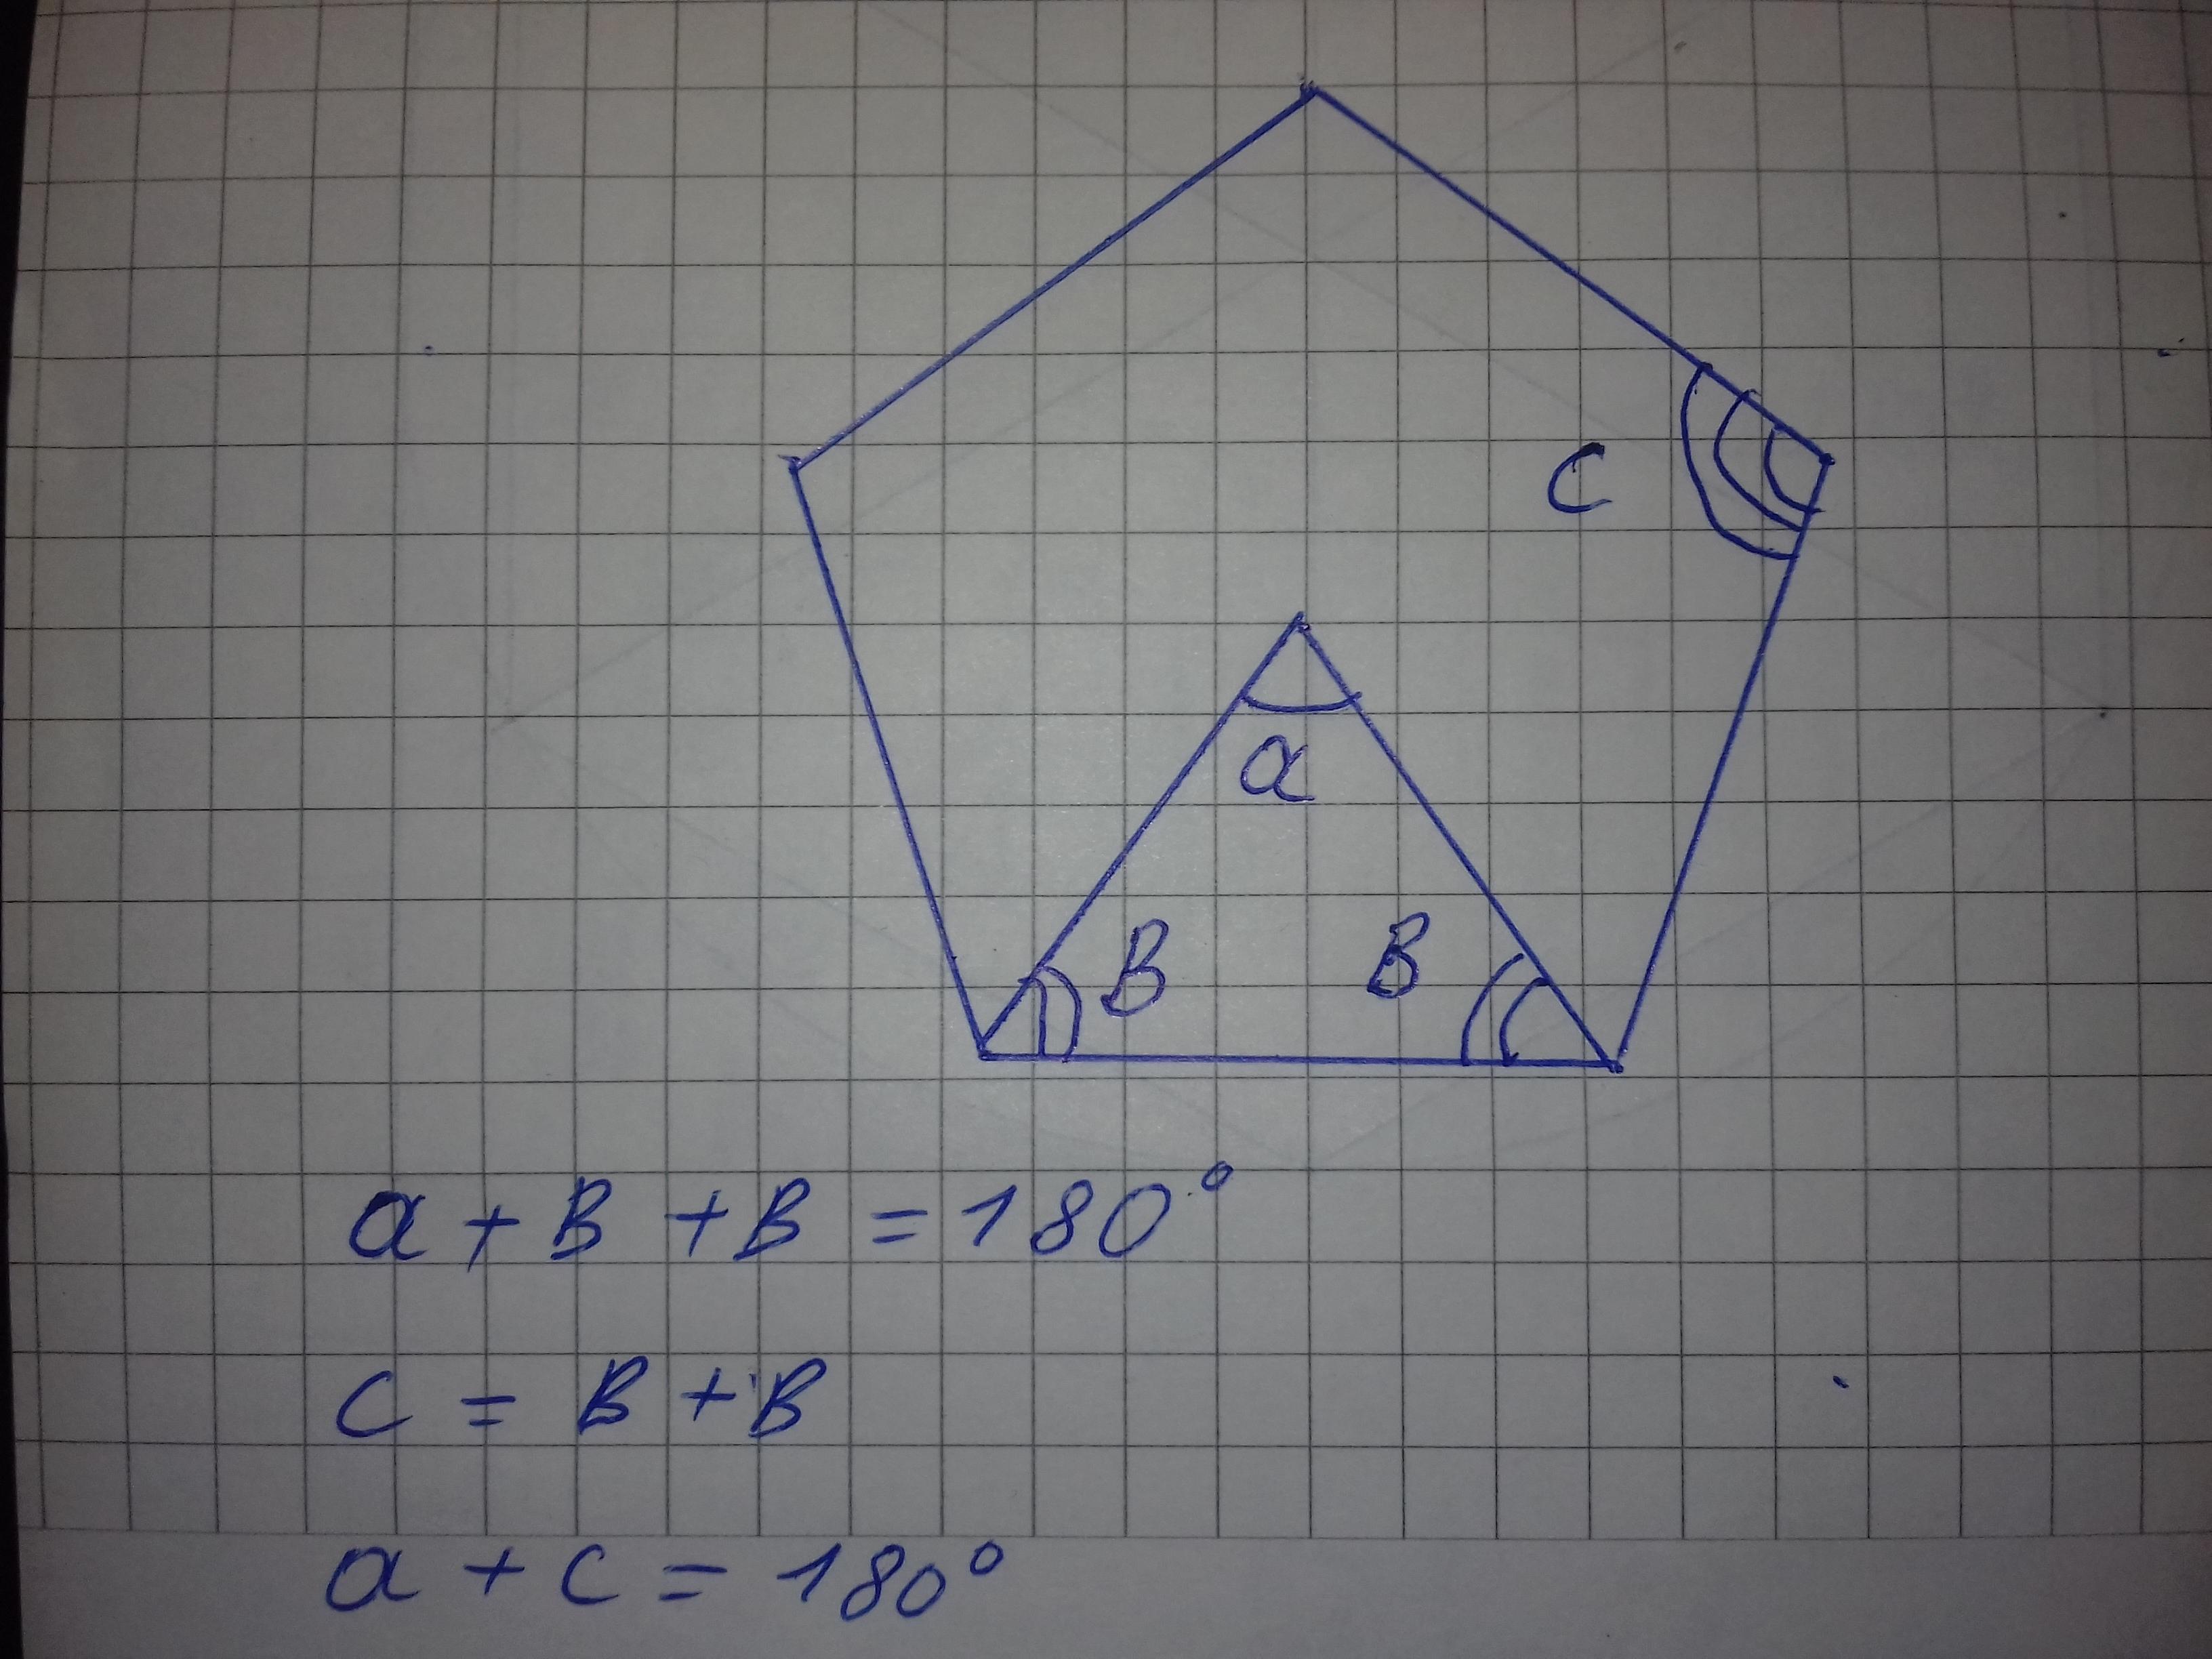 C
a
B B
a + B + B = 180°
C = B + B
a + c = 180°